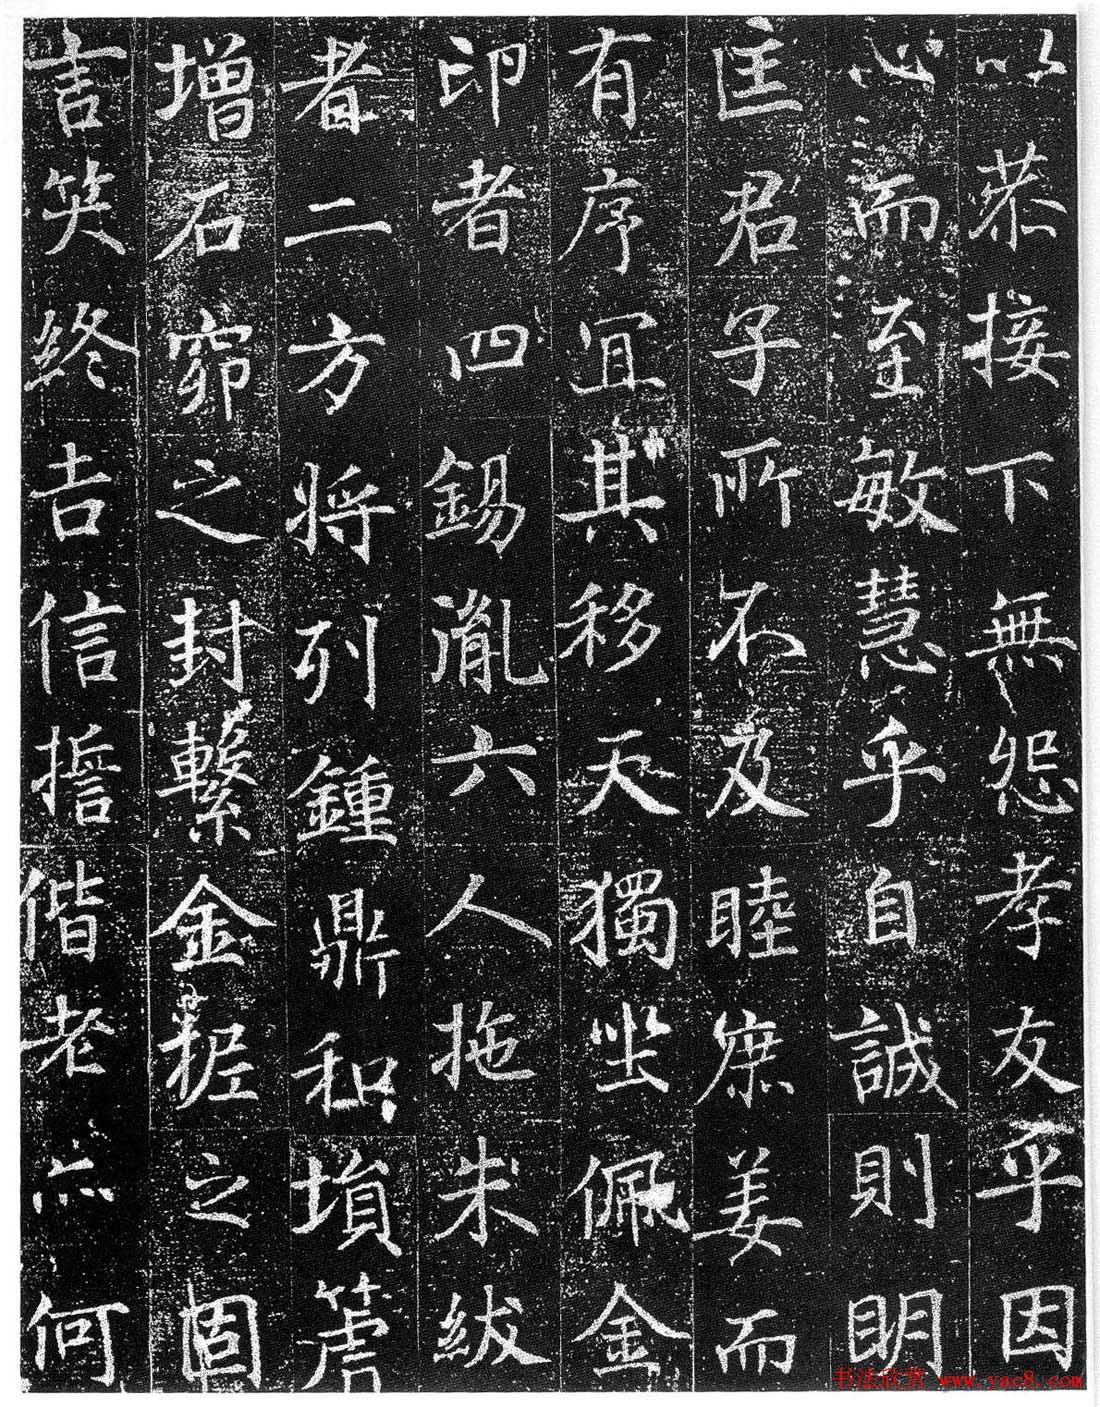 以恭接下無怨孝友乎因
心而至敏慧乎自誠則明
匡君子所不及睦庶姜而
有序宜其移天獨坐佩金
印者四錫胤六人拖朱紱
者二方將列鍾鼎和塤箎
增石窌之封繫金柅之固
言笑終吉信誓偕老亦何
书法欣赏 www.yac8.com